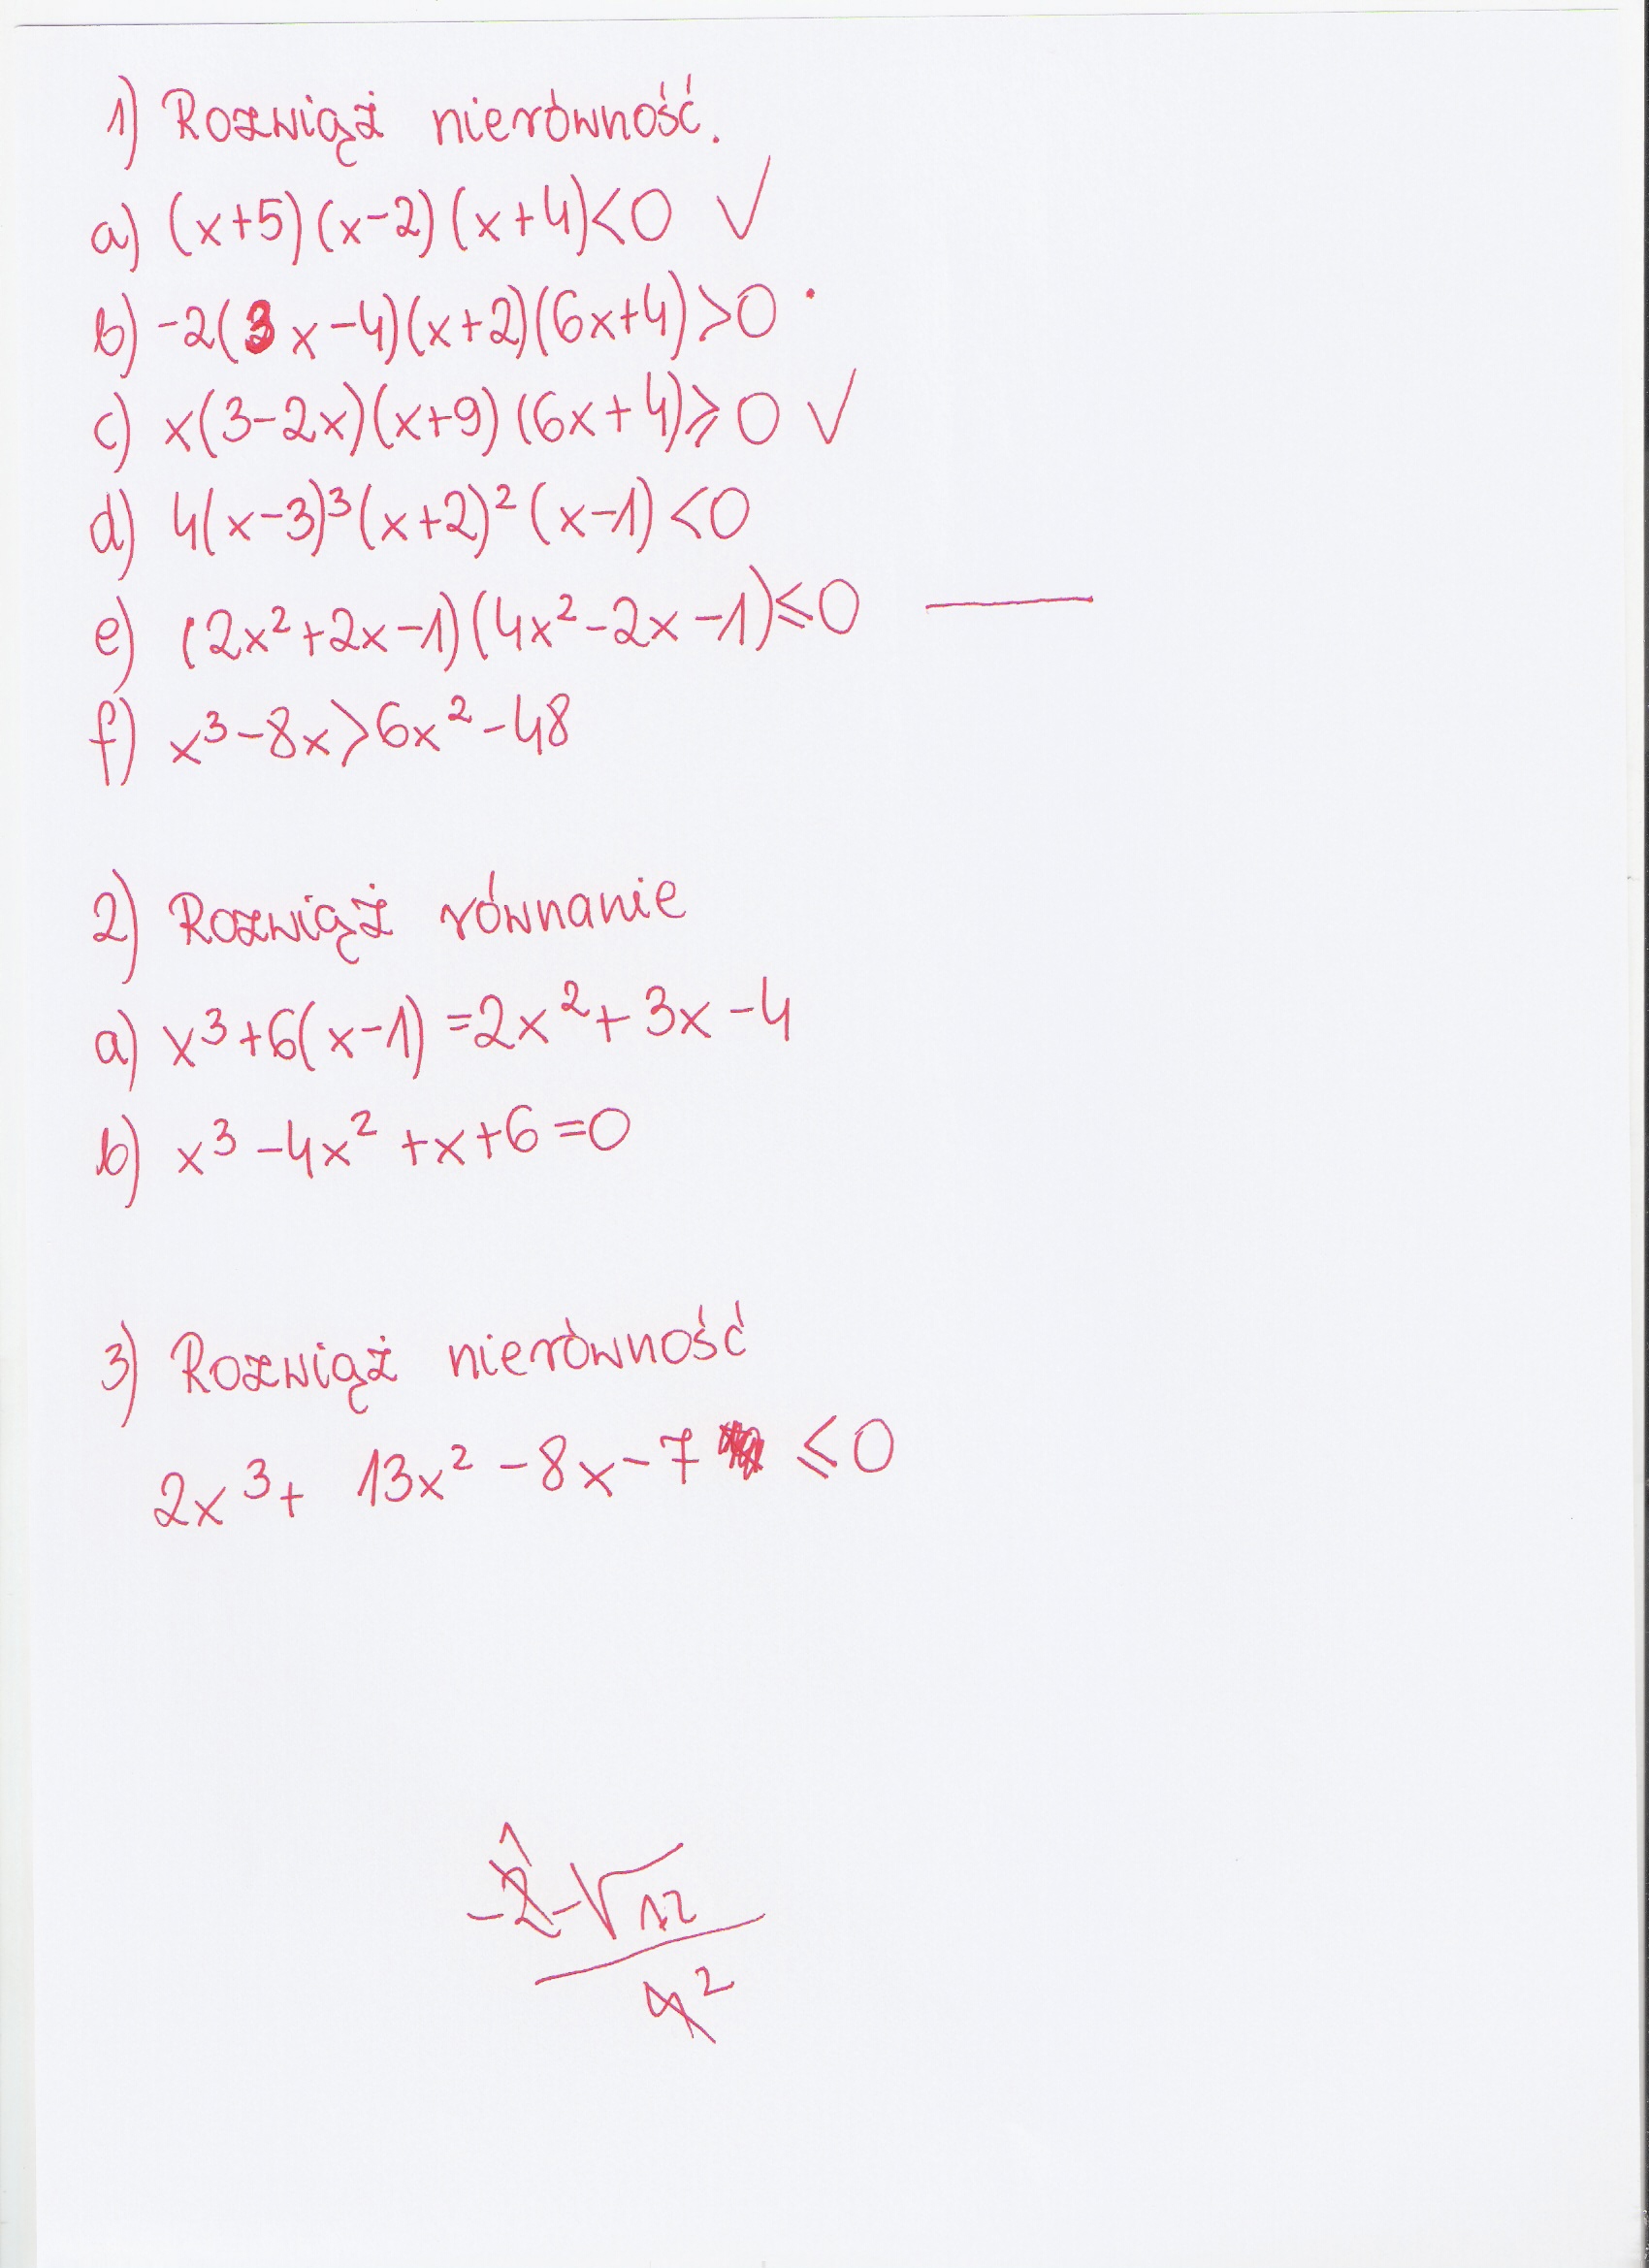 1) Rozwiąż nierówność.
a) (x+5)(x-2)(x+4)<0 √
b) -2(3x-4)(x+2)(6x+4)>0
c) x(3-2x)(x+9)(6x+4)≥0 √
d) 4(x-3)³(x+2)²(x-1)<0
e) (2x²+2x-1)(4x²-2x-1)≤0
f) x³-8x>6x²-48
2) Rozwiąż równanie
a) x³+6(x-1)=2x²+3x-4
b) x³-4x²+x+6=0
3) Rozwiąż nierówność
2x³+ 13x²-8x-7 ≤0
1
-2-√12
4 2